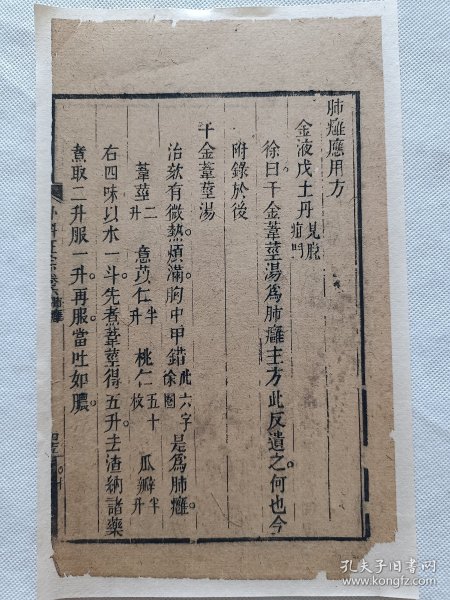 肺癰應用方
金液戊土丹見脫疽門
徐曰千金葦莖湯為肺癰主方此反遺之何也今
附錄於後
千金葦莖湯
治欬有微熱煩滿胸中甲錯此六字徐圈是為肺癰
葦莖二升 意苡仁半升 桃仁五十枚 瓜瓣半升
右四味以水一斗先煮葦莖得五升去渣納諸藥
煮取二升服一升再服當吐如膿
孔夫子旧书网
www.kongfz.com